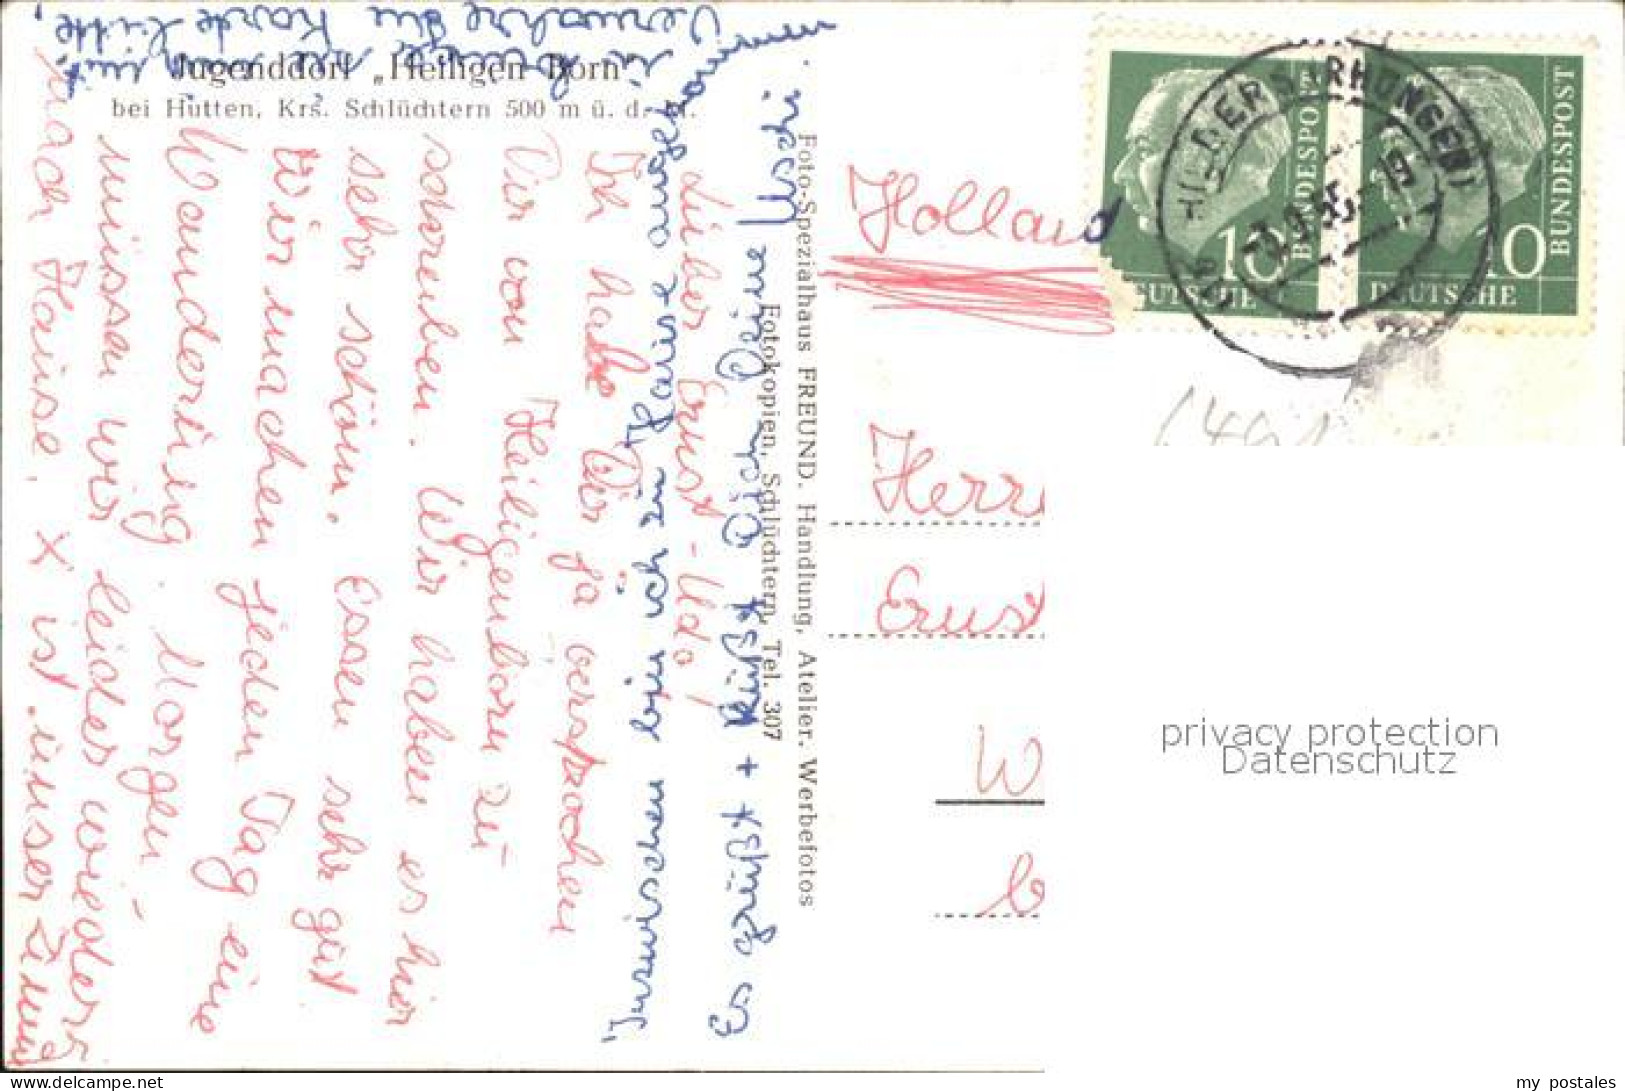 Jugenddorf „Heiligen Born"
bei Hutten, Krs. Schlüchtern 500 m ü. d. M.
Lieber Ernst-Udo!
Ich habe Dir ja versprochen
Dir von Heiligenborn zu
schreiben. Wir haben es hier
sehr schön. Essen sehr gut
Wir machen jeden Tag eine
Wanderung. Morgen
müssen wir leider wieder
nach Hause. X ist unser Zimm
Inzwischen bin ich zu Hause angekommen
Es grüßt + küßt Dich Deine Uschi.
Verwahre die Karte bitte,
Foto-Spezialhaus FREUND. Handlung, Atelier. Werbefotos
Fotokopien, Schlüchtern, Tel. 307
Holland
Herrn
Ernst
W
b
BUNDESPOST
10
DEUTSCHE
BUNDESPOST
10
DEUTSCHE
HILDERS (RHÖN)
privacy protection
Datenschutz
my_postales
www.delcampe.net